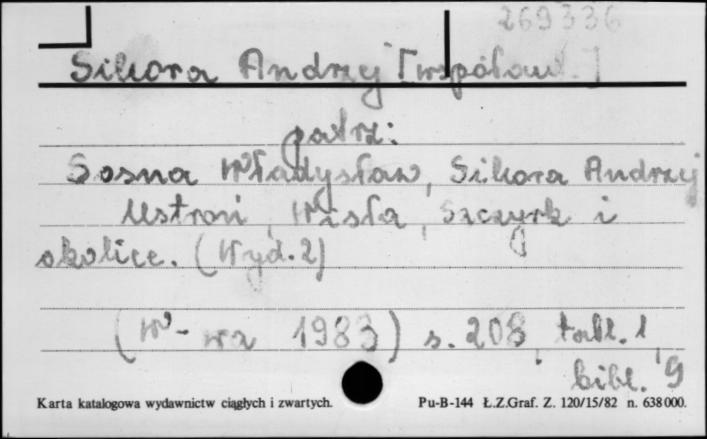 269336
Sikora Andrzej [współaut.]
patrz:
Sosna Władysław, Sikora Andrzej
Ustroń, Wisła, Szczyrk i
okolice. (Wyd. 2)
(W-wa 1983) s. 208, tabl. 1,
bibl. 9
Karta katalogowa wydawnictw ciągłych i zwartych. Pu-B-144 Ł.Z.Graf. Z. 120/15/82 n. 638 000.